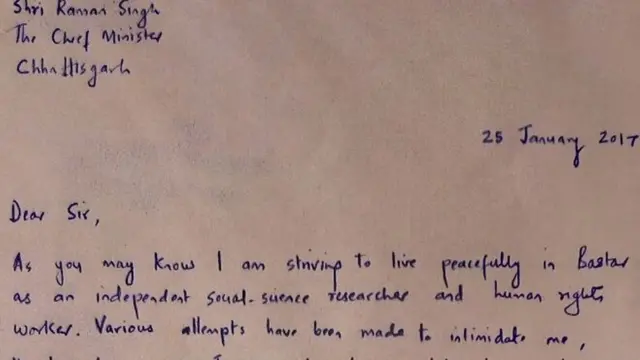 Shri Raman Singh
The Chief Minister
Chhattisgarh
25 January 2017
Dear Sir,
As you may know I am striving to live peacefully in Bastar
as an independent social-science researcher and human rights
worker. Various attempts have been made to intimidate me,